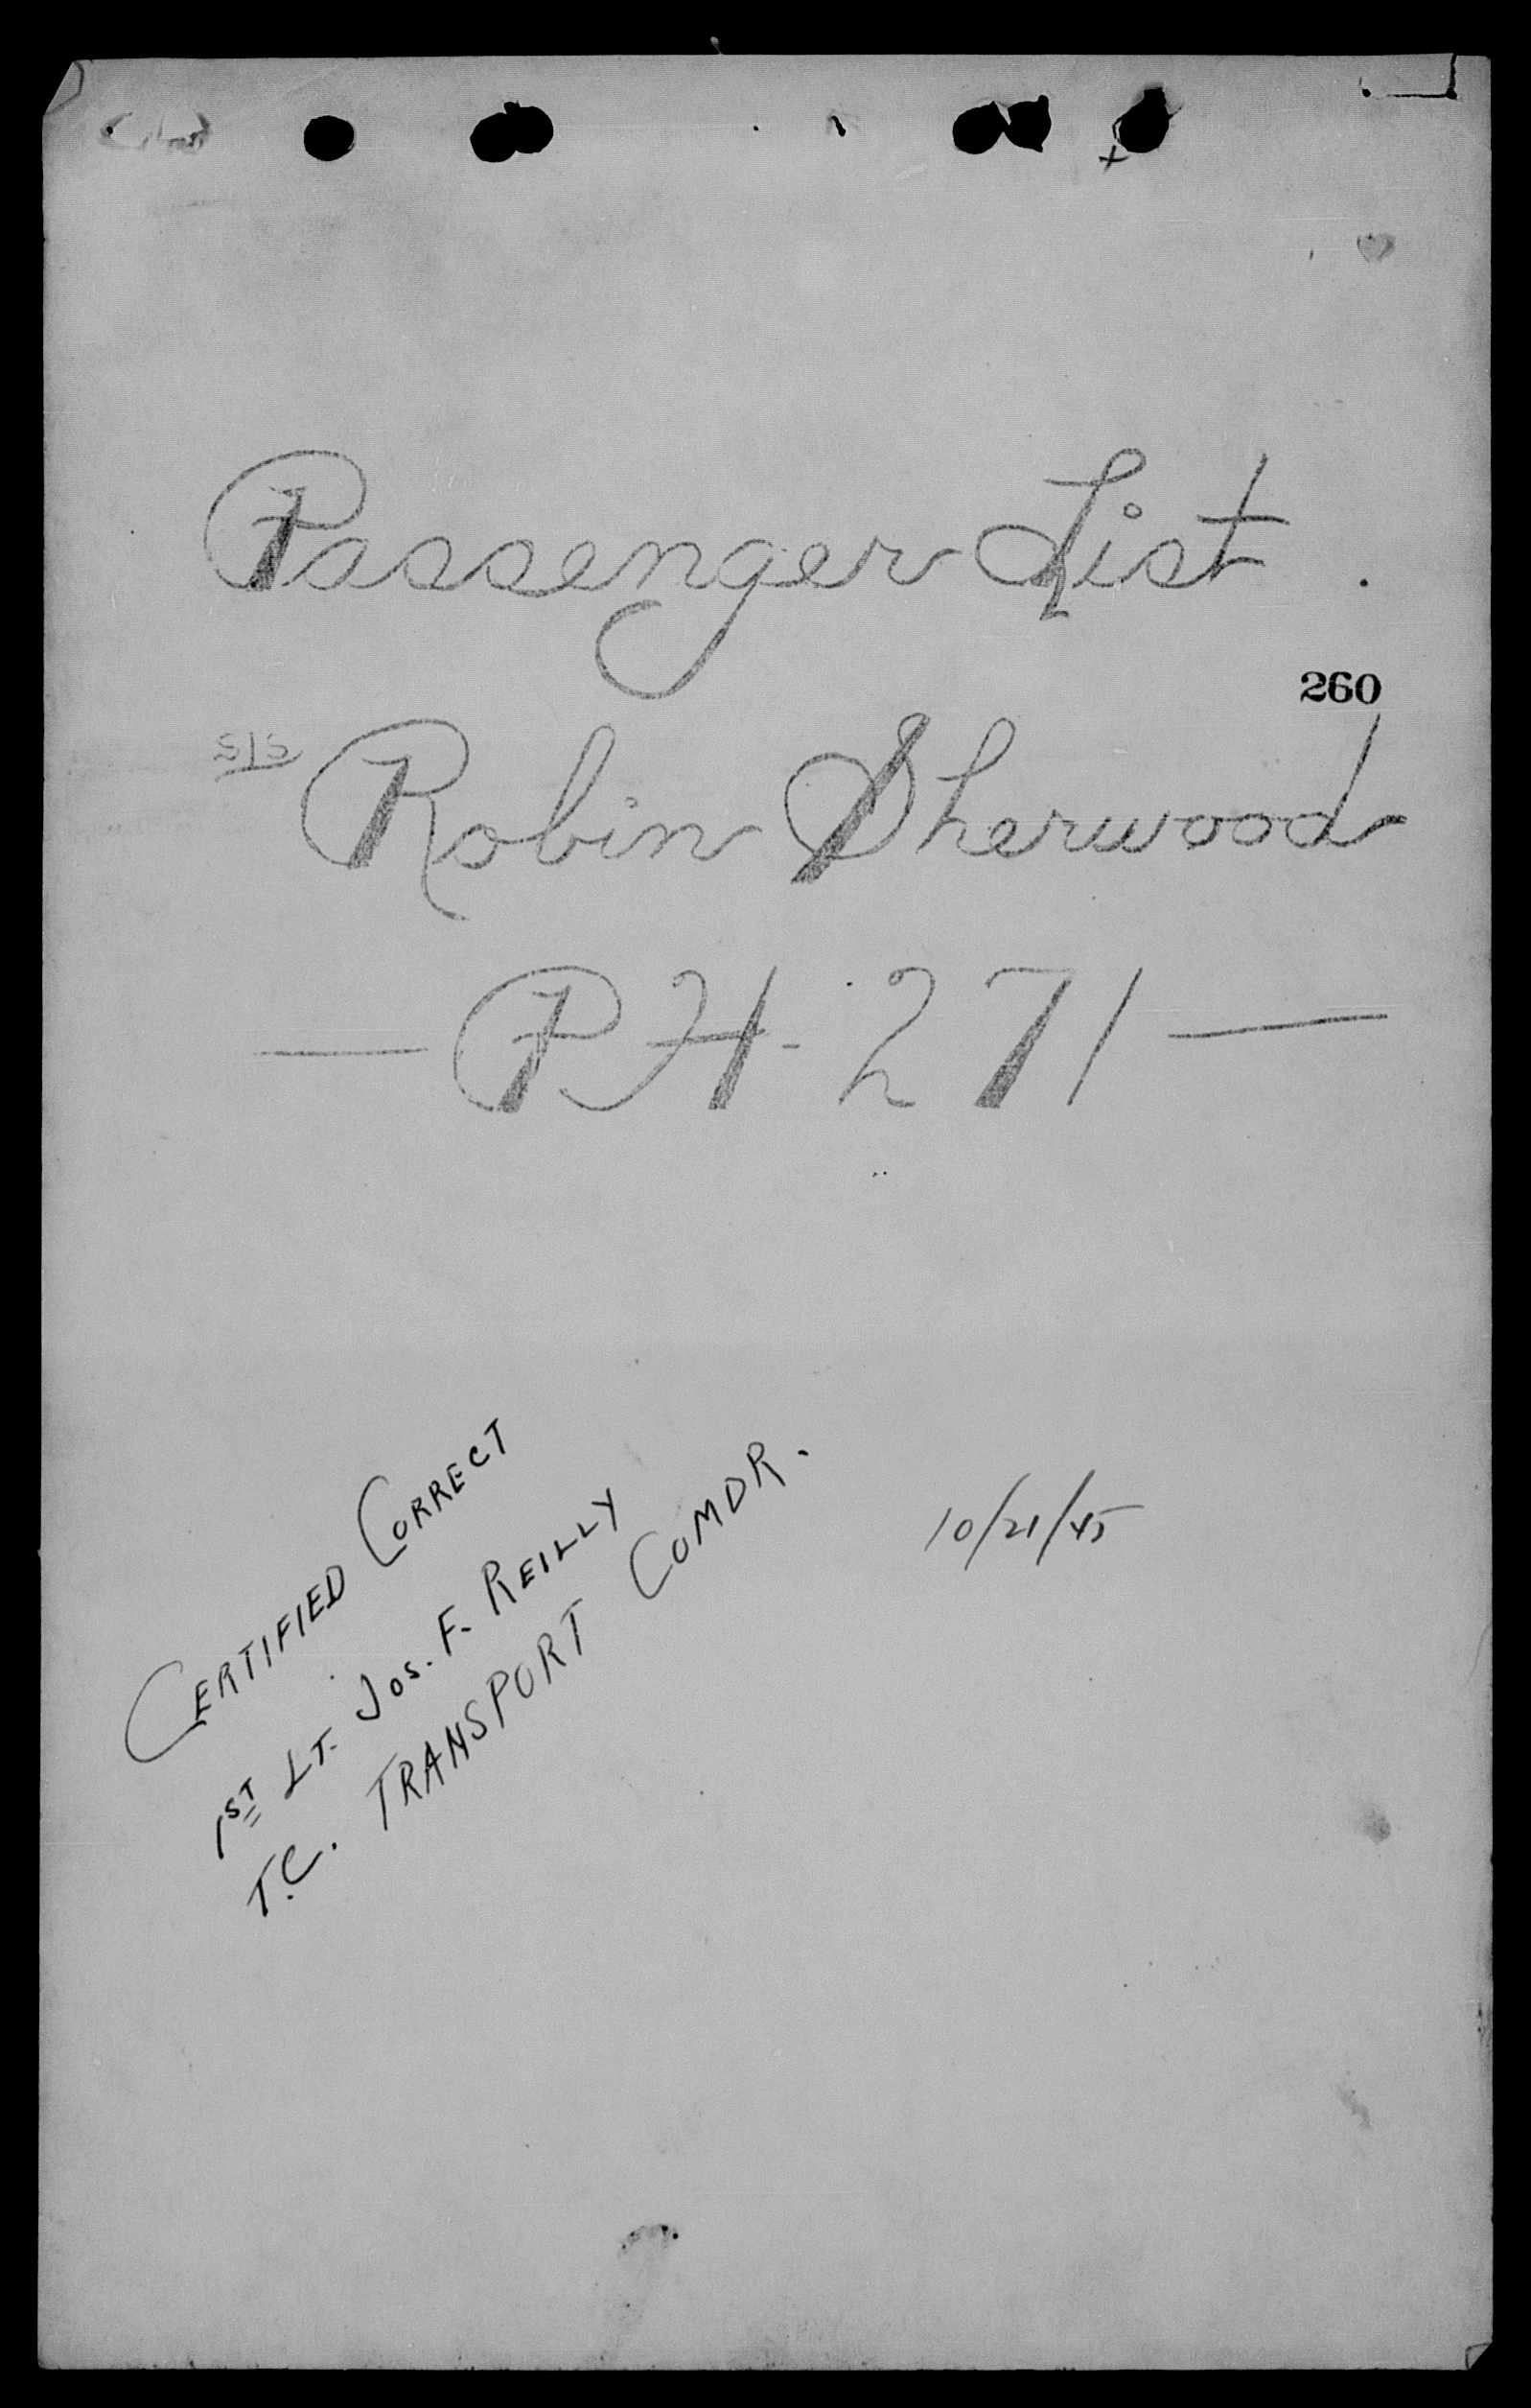 Passenger List
260
S/S Robin Sherwood
— PH-271 —
CERTIFIED CORRECT
1ST LT. JOS. F. REILLY
T.C. TRANSPORT COMDR.
10/21/45